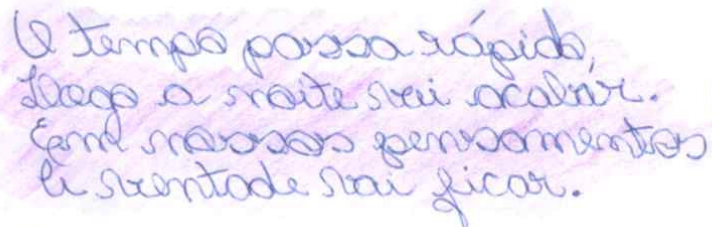 O tempo passa rápido,
Logo a noite vai acabar.
Em nossos pensamentos
A vontade vai ficar.